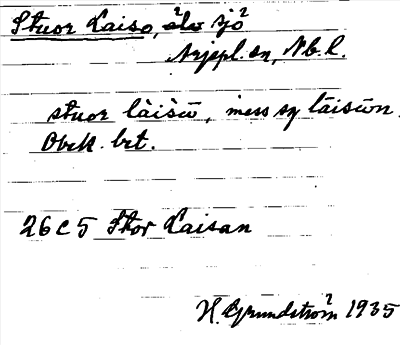 Stuor Laiso, älv² sjö²
Arjepl. sn, Nb. l.
stuor lài̇sū, iness sg lāisūn.
Obek. bet.
26 C 5 Stor Laisan
H. Grundström 1935